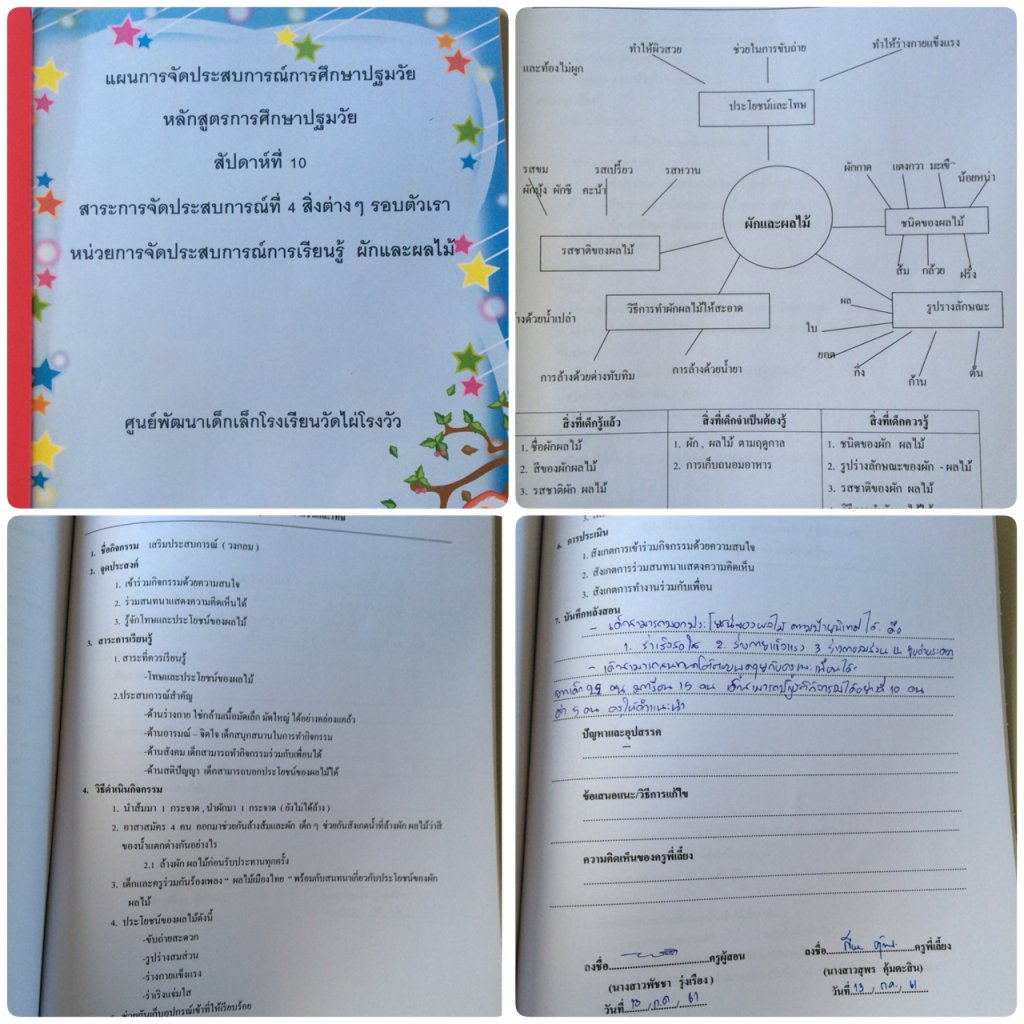 แผนการจัดประสบการณ์การศึกษาปฐมวัย
หลักสูตรการศึกษาปฐมวัย
สัปดาห์ที่ 10
สาระการจัดประสบการณ์ที่ 4 สิ่งต่างๆ รอบตัวเรา
หน่วยการจัดประสบการณ์การเรียนรู้ ผักและผลไม้
ศูนย์พัฒนาเด็กเล็กโรงเรียนวัดไผ่โรงวัว
ทำให้ผิวสวย ช่วยในการขับถ่าย ทำให้ร่างกายแข็งแรง
และท้องไม่ผูก
ประโยชน์และโทษ
รสขม รสเปรี้ยว รสหวาน
ผักบุ้ง ผักชี คะน้า
ผักกาด แตงกวา มะเขื
น้อยหน่า
ผักและผลไม้
ชนิดของผลไม้
รสชาติของผลไม้
ส้ม กล้วย ฝรั่ง
วิธีการทำผักผลไม้ให้สะอาด
ผล
รูปรางลักษณะ
างด้วยน้ำเปล่า
ใบ
ยอด
กิ่ง
ก้าน
ต้น
การล้างด้วยด่างทับทิม การล้างด้วยน้ำยา
สิ่งที่เด็กรู้แล้ว สิ่งที่เด็กจำเป็นต้องรู้ สิ่งที่เด็กควรรู้
1. ชื่อผักผลไม้ 1. ผัก , ผลไม้ ตามฤดูกาล 1. ชนิดของผัก ผลไม้
2. สีของผักผลไม้ 2. การเก็บถนอมอาหาร 2. รูปร่างลักษณะของผัก - ผลไม้
3. รสชาติผัก ผลไม้ 3. รสชาติของผัก ผลไม้
1. ชื่อกิจกรรม เสริมประสบการณ์ ( วงกลม )
2. จุดประสงค์
1. เข้าร่วมกิจกรรมด้วยความสนใจ
2. ร่วมสนทนาแสดงความคิดเห็นได้
3. รู้จักโทษและประโยชน์ของผลไม้
3. สาระการเรียนรู้
1. สาระที่ควรเรียนรู้
-โทษและประโยชน์ของผลไม้
2.ประสบการณ์สำคัญ
-ด้านร่างกาย ใช้กล้ามเนื้อมัดเล็ก มัดใหญ่ ได้อย่างคล่องแคล้ว
-ด้านอารมณ์ – จิตใจ เด็กสนุกสนานในการทำกิจกรรม
-ด้านสังคม เด็กสามารถทำกิจกรรมร่วมกับเพื่อนได้
-ด้านสติปัญญา เด็กสามารถบอกประโยชน์ของผลไม้ได้
4. วิธีดำเนินกิจกรรม
1. นำส้มมา 1 กระจาด , นำผักมา 1 กระจาด ( ยังไม่ได้ล้าง )
2. อาสาสมัคร 4 คน ออกมาช่วยกันล้างส้มและผัก เด็ก ๆ ช่วยกันสังเกตน้ำที่ล้างผัก ผลไม้ว่าสี
ของน้ำแตกต่างกันอย่างไร
2.1 ล้างผัก ผลไม้ก่อนรับประทานทุกครั้ง
3. เด็กและครูร่วมกันร้องเพลง " ผลไม้เมืองไทย " พร้อมกับสนทนาเกี่ยวกับประโยชน์ของผัก
ผลไม้
4. ประโยชน์ของผลไม้ดังนี้
-ขับถ่ายสะดวก
-รูปร่างสมส่วน
-ร่างกายแข็งแรง
-ร่าเริงแจ่มใส
5. ช่วยกันเก็บอุปกรณ์เข้าที่ให้เรียบร้อย
6. การประเมิน
1. สังเกตการเข้าร่วมกิจกรรมด้วยความสนใจ
2. สังเกตการร่วมสนทนาแสดงความคิดเห็น
3. สังเกตการทำงานร่วมกับเพื่อน
7. บันทึกหลังสอน
ปัญหาและอุปสรรค
ข้อเสนอแนะ/วิธีการแก้ไข
ความคิดเห็นของครูพี่เลี้ยง
ลงชื่อ ครูผู้สอน ลงชื่อ ครูพี่เลี้ยง
(นางสาวพัชชา รุ่งเรือง ) (นางสาวสุพร คุ้มตะสิน)
วันที่ 13 / ก.ค / 61 วันที่ 13 / ก.ค. / 61